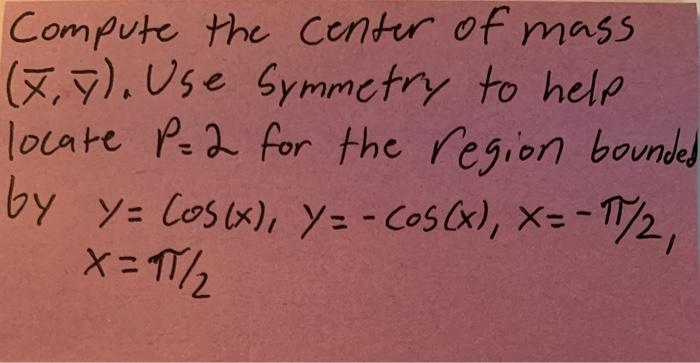 Compute the center of mass
(x̄, ȳ). Use Symmetry to help
locate P=2 for the region bounded
by y= Cos(x), y= -cos(x), x= -π/2,
x= π/2